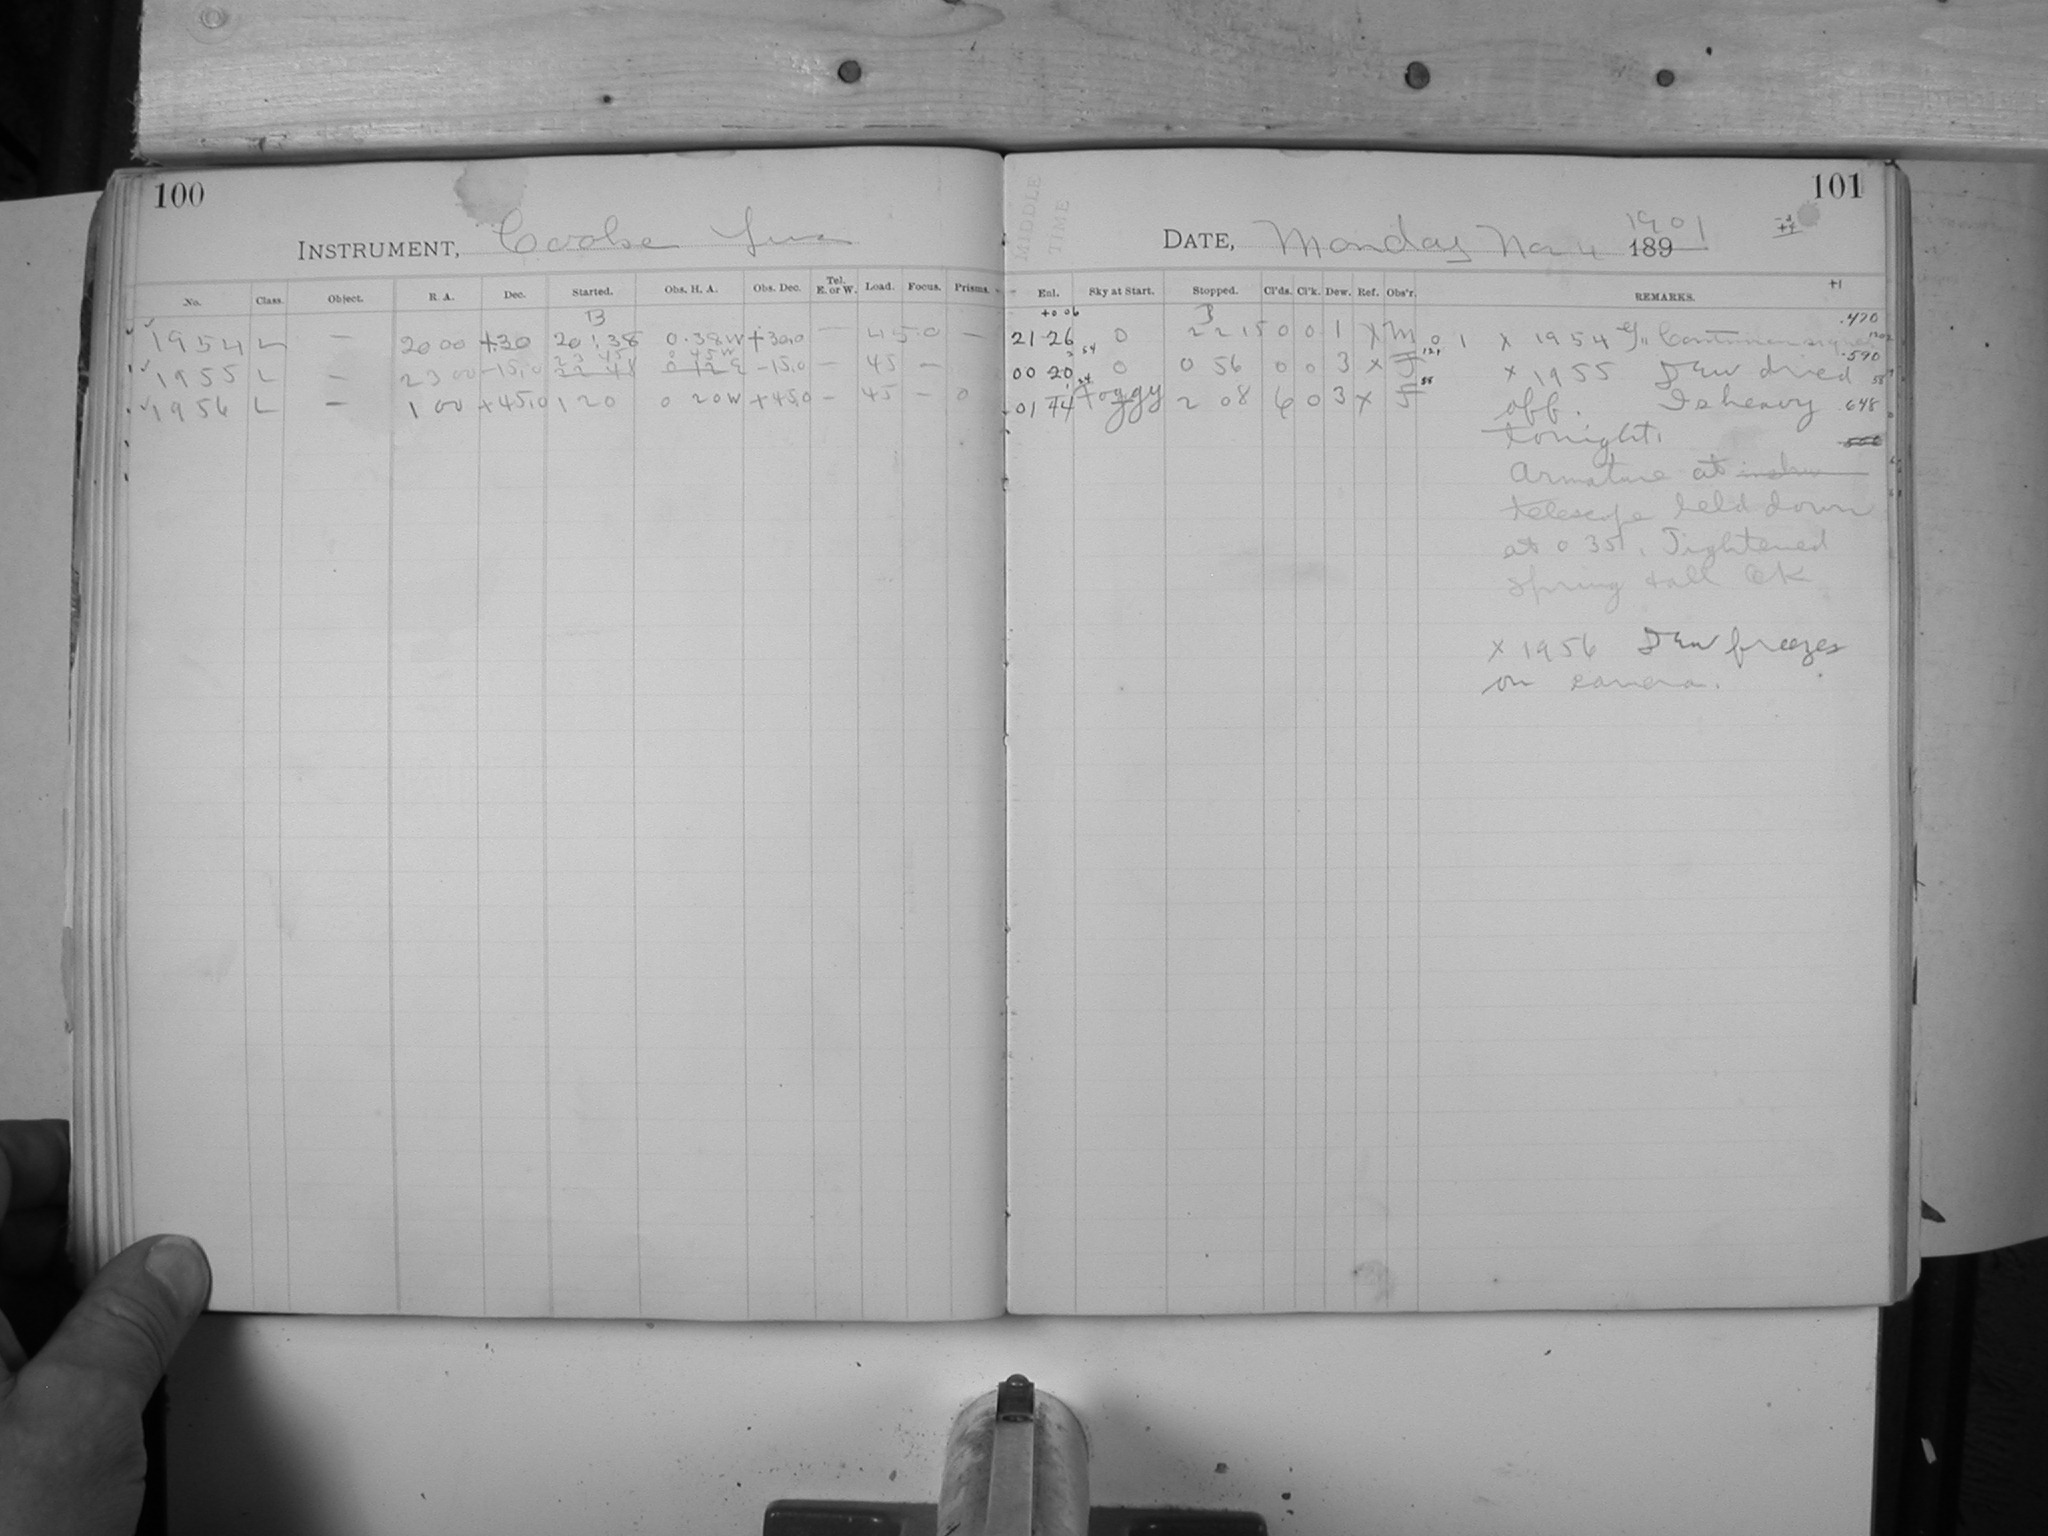 100
INSTRUMENT, Cooke
No. Class. Object. R. A. Dec. Started. Obs. H. A. Obs. Dec. Tel. E. or W. Load. Focus. Prisms.
B
1954 L — 20 00 +30 20 38 0.38W +30.0 — 45 0 —
23 45 0 45W
1955 L — 23 00 -15.0 22 48 0 12 E -15.0 — 45 —
1956 L — 1 00 +45.0 1 20 0 20W +45.0 — 45 — 0
101
MIDDLE
TIME
DATE, Monday Nov 4 1901
189
Enl. Sky at Start. Stopped. Cl'ds. Cl'k. Dew. Ref. Obs'r. REMARKS.
+1
+0 06
21 26 0 22 15 0 0 1 X M 0 1 X 1954 .470
00 20 54 0 0 56 0 0 3 X F 121 X 1955 Dew dried .590
01 44 24 Foggy 2 08 6 0 3 X F 58 off. Is heavy .648
tonight.
Armature at
telescope held down
at 0 35. Tightened
spring & all OK
X 1956 Dew freezes
on camera.